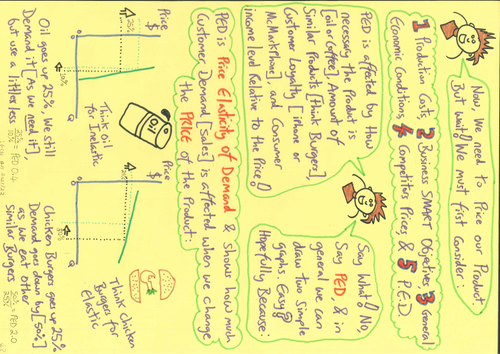 Now, We need to Price our Product,
But wait! We must first Consider:
1 Production Costs, 2 Business SMART Objectives 3 General
Economic Conditions, 4 Competitors Prices & 5 P.E.D
PED is affected by How
necessary the Product is
[oil or Coffee], Amount of
Similar Products [Think Burgers]
Customer Loyalty [iphone or
McMarkPhone] and Consumer
income level Relative to the Price!
Say What? No,
Say PED, & in
general we can
draw two simple
graphs. Easy?
Hopefully Because:
PED is Price Elasticity of Demand & shows how much
Customer Demand [Sales] is affected when we change
the PRICE of the Product:
Price
$
25%
10%
Q
Think oil
for Inelastic
OIL
Oil goes up 25%, We still
Demand it [As we need it]
but use a little less
10%
25% = PED 0.4
Price
$
Q
Think Chicken
Burgers for
Elastic
Chicken Burgers goes up 25%
Demand goes down by [50%]
as we eat other
Similar Burgers
50%
25% = PED 2.0